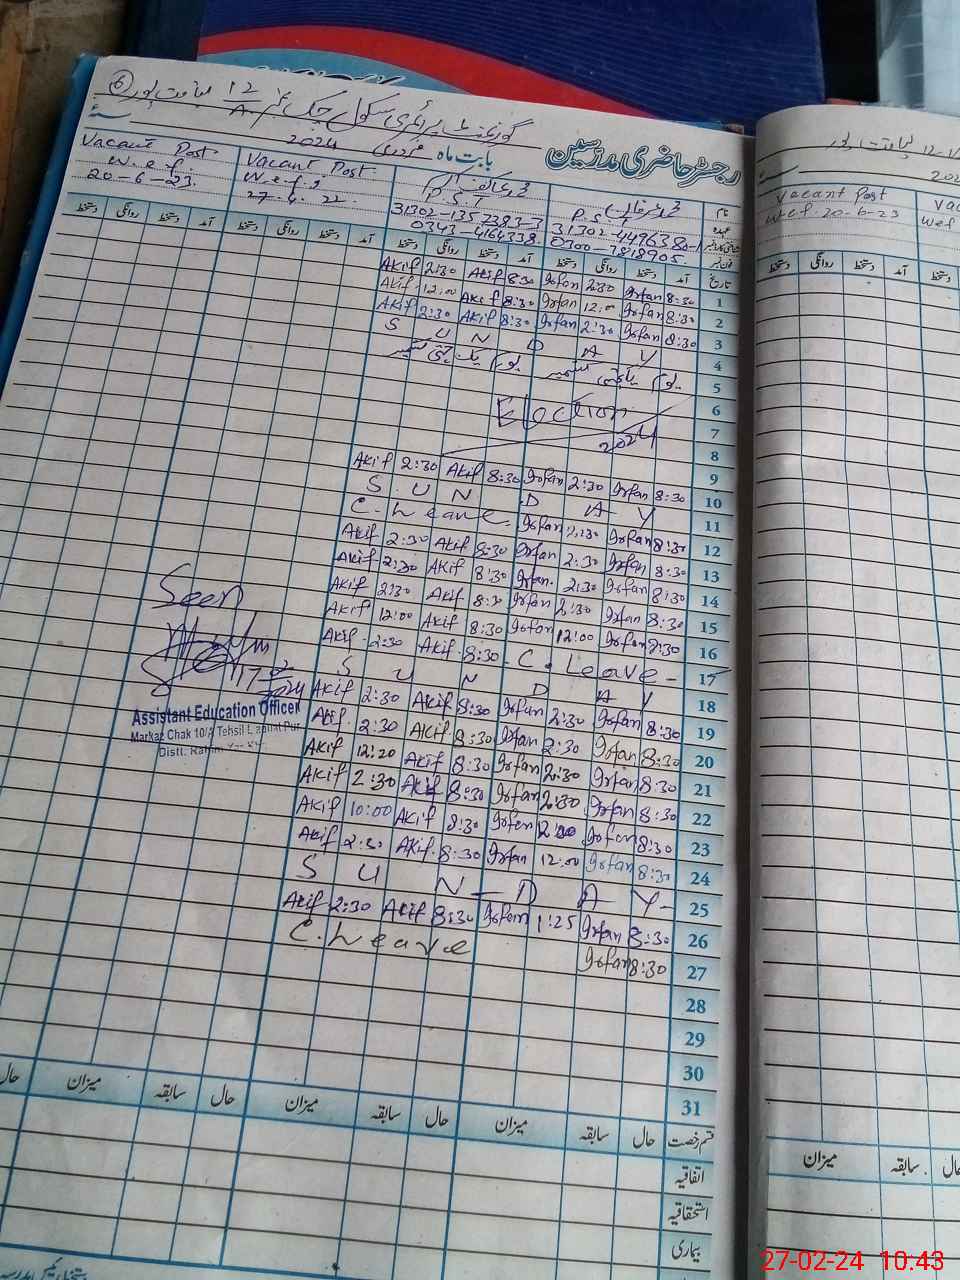 گورنمنٹ پرائمری سکول چک نمبر 12/A لیاقت پور 6
رجسٹر حاضری مدرسین بابت ماہ فروری 2024
نام
Vacant Post
Vacant Post
عہدہ P.S.T P.S.T
w.e.f.
w.e.f.
31302-4496380-1
20-6-23.
27.4.22.
0300-7818905.
0343-4164338.
تاریخ آمد دستخط روانگی دستخط آمد دستخط روانگی دستخط آمد دستخط روانگی دستخط آمد دستخط روانگی دستخط
1 8:30 Irfan 2:30 Irfan 8:30 Akif 2:30 Akif
2 8:30 Irfan 12:00 Irfan 8:30 Akif 12:00 Akif
3 8:30 Irfan 2:30 Irfan 8:30 Akif 2:30 Akif
4 S U N D A Y
5 یوم یکجہتی کشمیر یوم یکجہتی کشمیر
6
7 Election
8 2024
9
10 8:30 Irfan 2:30 Irfan 8:30 Akif 2:30 Akif
11 S U N D A Y
12 8:30 Irfan 2:30 Irfan C. Leave
13 8:30 Irfan 2:30 Irfan 8:30 Akif 2:30 Akif
14 8:30 Irfan 2:30 Irfan 8:30 Akif 2:30 Akif
15 8:30 Irfan 2:30 Irfan 8:30 Akif 2:30 Akif
16 8:30 Irfan 12:00 Irfan 8:30 Akif 12:00 Akif
17 C. Leave 8:30 Akif 2:30 Akif
18 S U N D A Y
19 8:30 Irfan 2:30 Irfan 8:30 Akif 2:30 Akif
20 8:30 Irfan 2:30 Irfan 8:30 Akif 2:30 Akif
21 8:30 Irfan 2:30 Irfan 8:30 Akif 12:20 Akif
22 8:30 Irfan 2:30 Irfan 8:30 Akif 2:30 Akif
23 8:30 Irfan Irfan 8:30 Akif 10:00 Akif
24 8:30 Irfan 12:00 Irfan 8:30 Akif 2:30 Akif
25 S U N D A Y
26 8:30 Irfan 1:25 Irfan 8:30 Akif 2:30 Akif
27 8:30 Irfan C. Leave
28
29
30
31
Seen
17 2/2024
Assistant Education Officer
Markaz Chak 10/A Tehsil Liaqat Pur
Distt. Rahim
قسم رخصت حال سابقہ میزان حال سابقہ میزان حال سابقہ میزان حال
اتفاقیہ
استحقاقیہ
بیماری
Vacant Post
wef. 20-6-23
wef
آمد دستخط روانگی دستخط
دستخط
سابقہ میزان
27-02-24 10.43